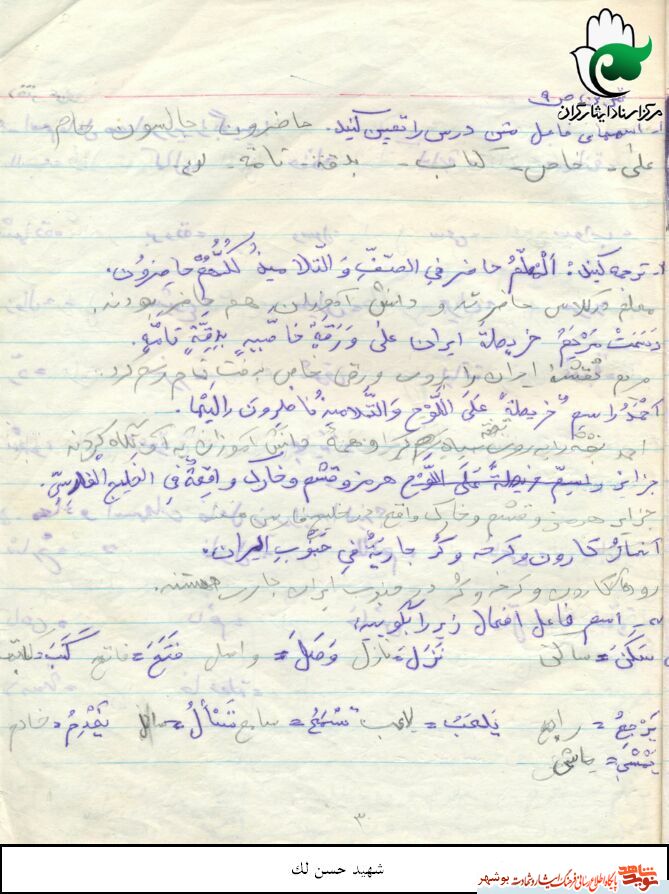 مرکز اسناد ایثارگران
تمرین ص ۹
اسمهای فاعل متن درس را تعیین کنید. حاضرون جالسون
علی - خاص - کتاب - بدقة تامة -
ترجمه کنید: اَلْمُعَلِّمُ حاضر فی الصّفِّ وَ التّلامیذُ کُلُّهُمْ حاضرونَ.
معلم در کلاس حاضر شد و دانش آموزان هم حاضر بودند.
رَسَمَتْ مَرْیَمُ خریطةَ ایران علی وَرَقَةٍ خاصّةٍ بِدِقَّةٍ تامَّةٍ.
مریم نقشهٔ ایران را بر روی ورقی خاص به دقت تمام رسم کرد.
اَحْمَدُ راسِمٌ خریطةً عَلَی اللَّوْحِ وَ التَّلامیذُ ناظرونَ اِلَیْها.
احمد نقشه را بر روی تخته سیاه رسم کرد و همهٔ دانش آموزان به آن نگاه کردند
جزایر راسِمٌ خریطةً عَلَی اللَّوْحِ هرمز و قشم و خارک واقِعةٌ فی الخلیج الفارسیّ.
جزایر هرمز و قشم و خارک واقع در خلیج فارس
اَنهارُ کارون و کرخه و کُر جاریَةٌ فی جَنُوبِ ایران.
رودهای کارون و کرخه و کُر در جنوب ایران جاری هستند.
اسم فاعل افعال زیر را بگویید:
سَکَنَ = ساکن نَزَلَ = نازل وَصَلَ = واصل فَتَحَ = فاتح کَتَبَ = کاتب
یَرْجِعُ = راجع یَلعَبُ = لاعب تَسْمَعُ = سامع تَسْألُ = سائل یَخْدِمُ = خادم
یَمْشی = ماشی
۳
شهید حسن لک
نوید شاهد
پایگاه اطلاع رسانی فرهنگ ایثار و شهادت بوشهر